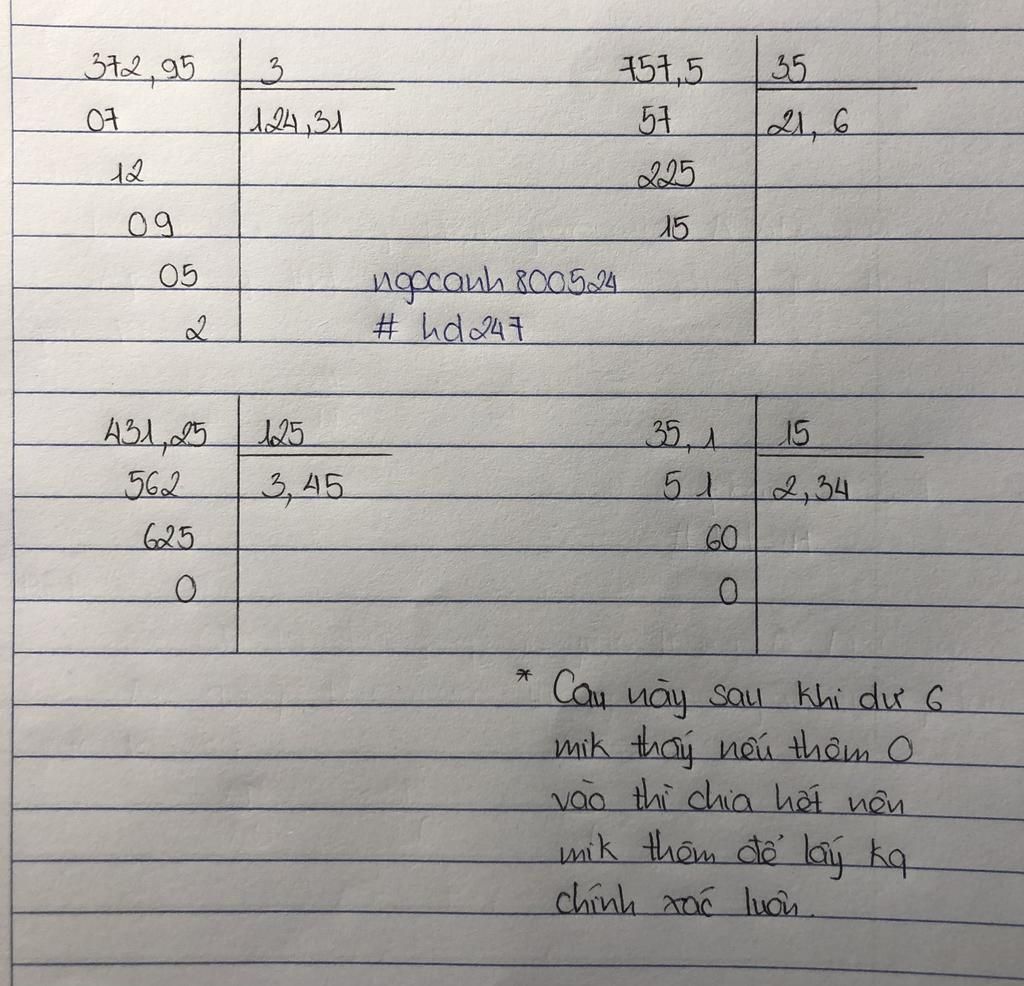 372,95 3 757,5 35
07 124,31 57 21,6
12 225
09 15
05 ngocanh800524
2 # hd247
431,25 125 35,1 15
562 3,45 51 2,34
625 60
0 0
* Câu này sau khi dư 6
mik thấy nếu thêm 0
vào thì chia hết nên
mik thêm để lấy kq
chính xác luôn.